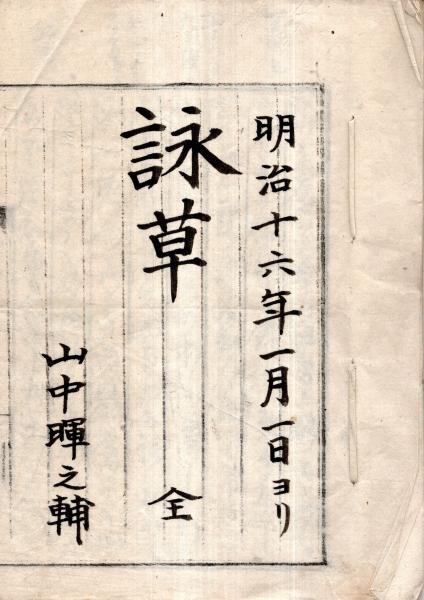 明治十六年一月一日ヨリ
詠草 全
山中暉之輔